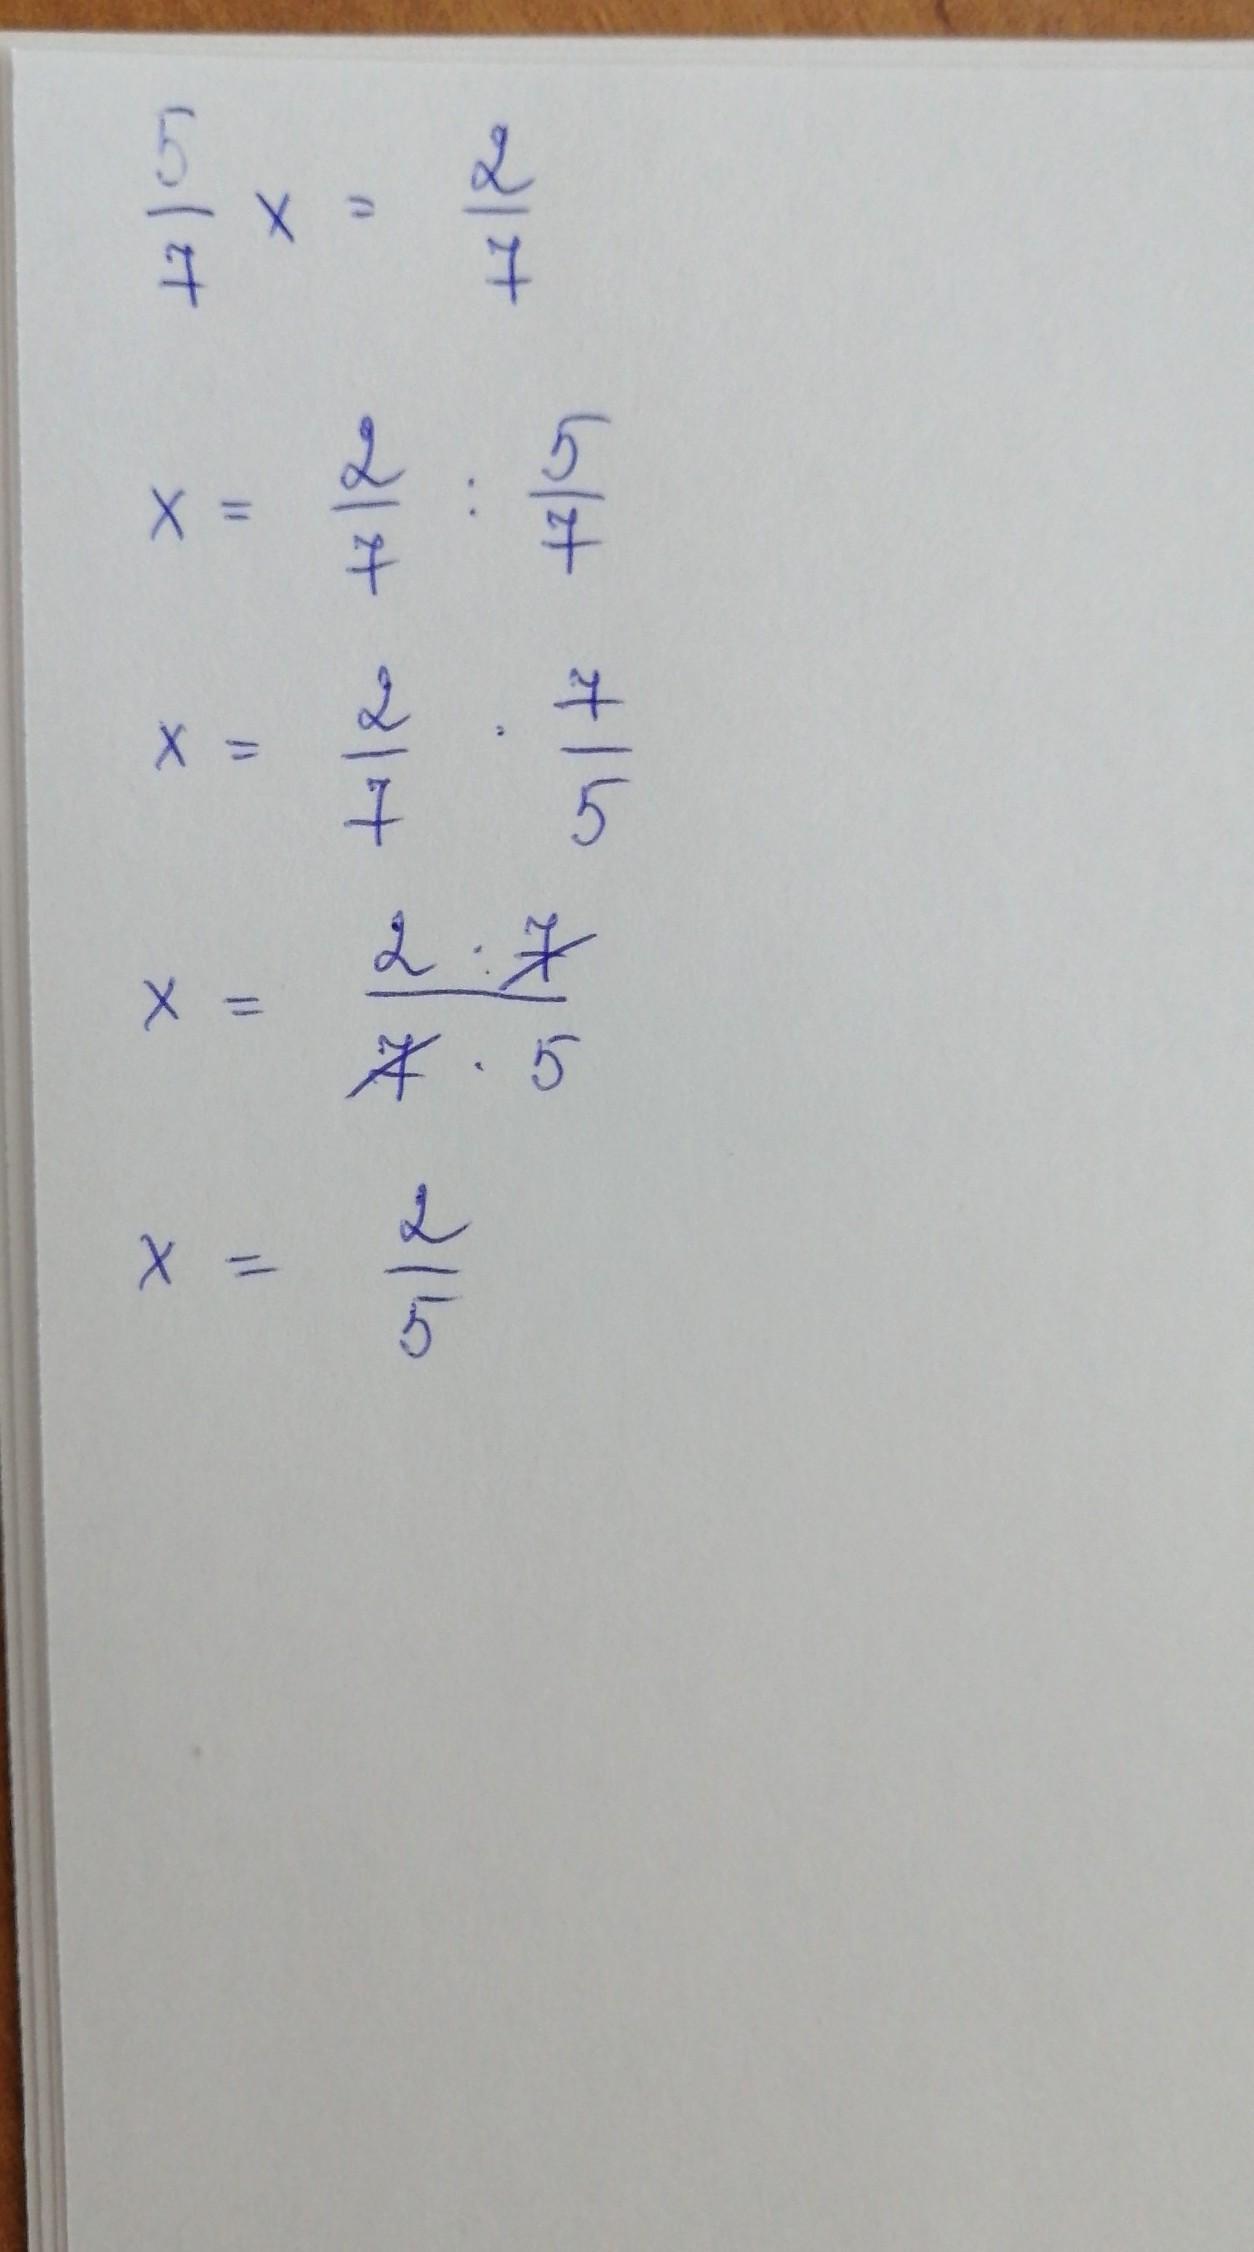 5/7 x = 2/7
x = 2/7 : 5/7
x = 2/7 · 7/5
x = 2 · 7 / 7 · 5
x = 2/5